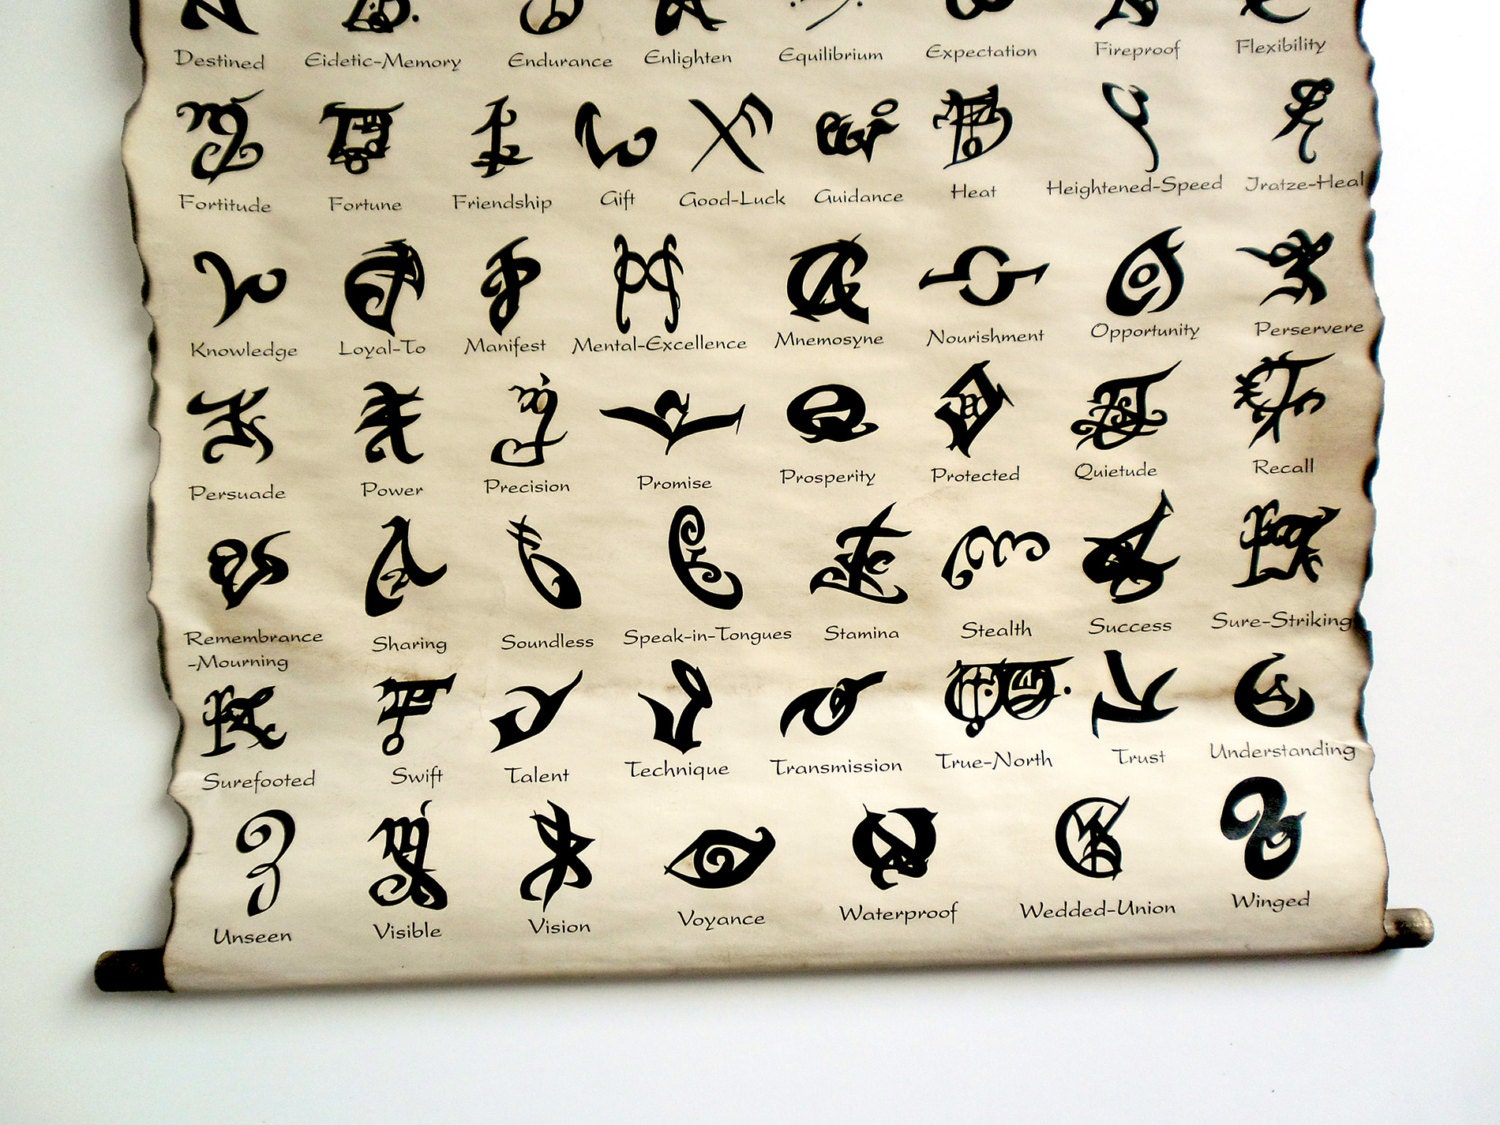 Destined Eidetic-Memory Endurance Enlighten Equilibrium Expectation Fireproof Flexibility
Fortitude Fortune Friendship Gift Good-Luck Guidance Heat Heightened-Speed Iratze-Heal
Knowledge Loyal-To Manifest Mental-Excellence Mnemosyne Nourishment Opportunity Perservere
Persuade Power Precision Promise Prosperity Protected Quietude Recall
Remembrance Sharing Soundless Speak-in-Tongues Stamina Stealth Success Sure-Striking
-Mourning
Surefooted Swift Talent Technique Transmission True-North Trust Understanding
Unseen Visible Vision Voyance Waterproof Wedded-Union Winged